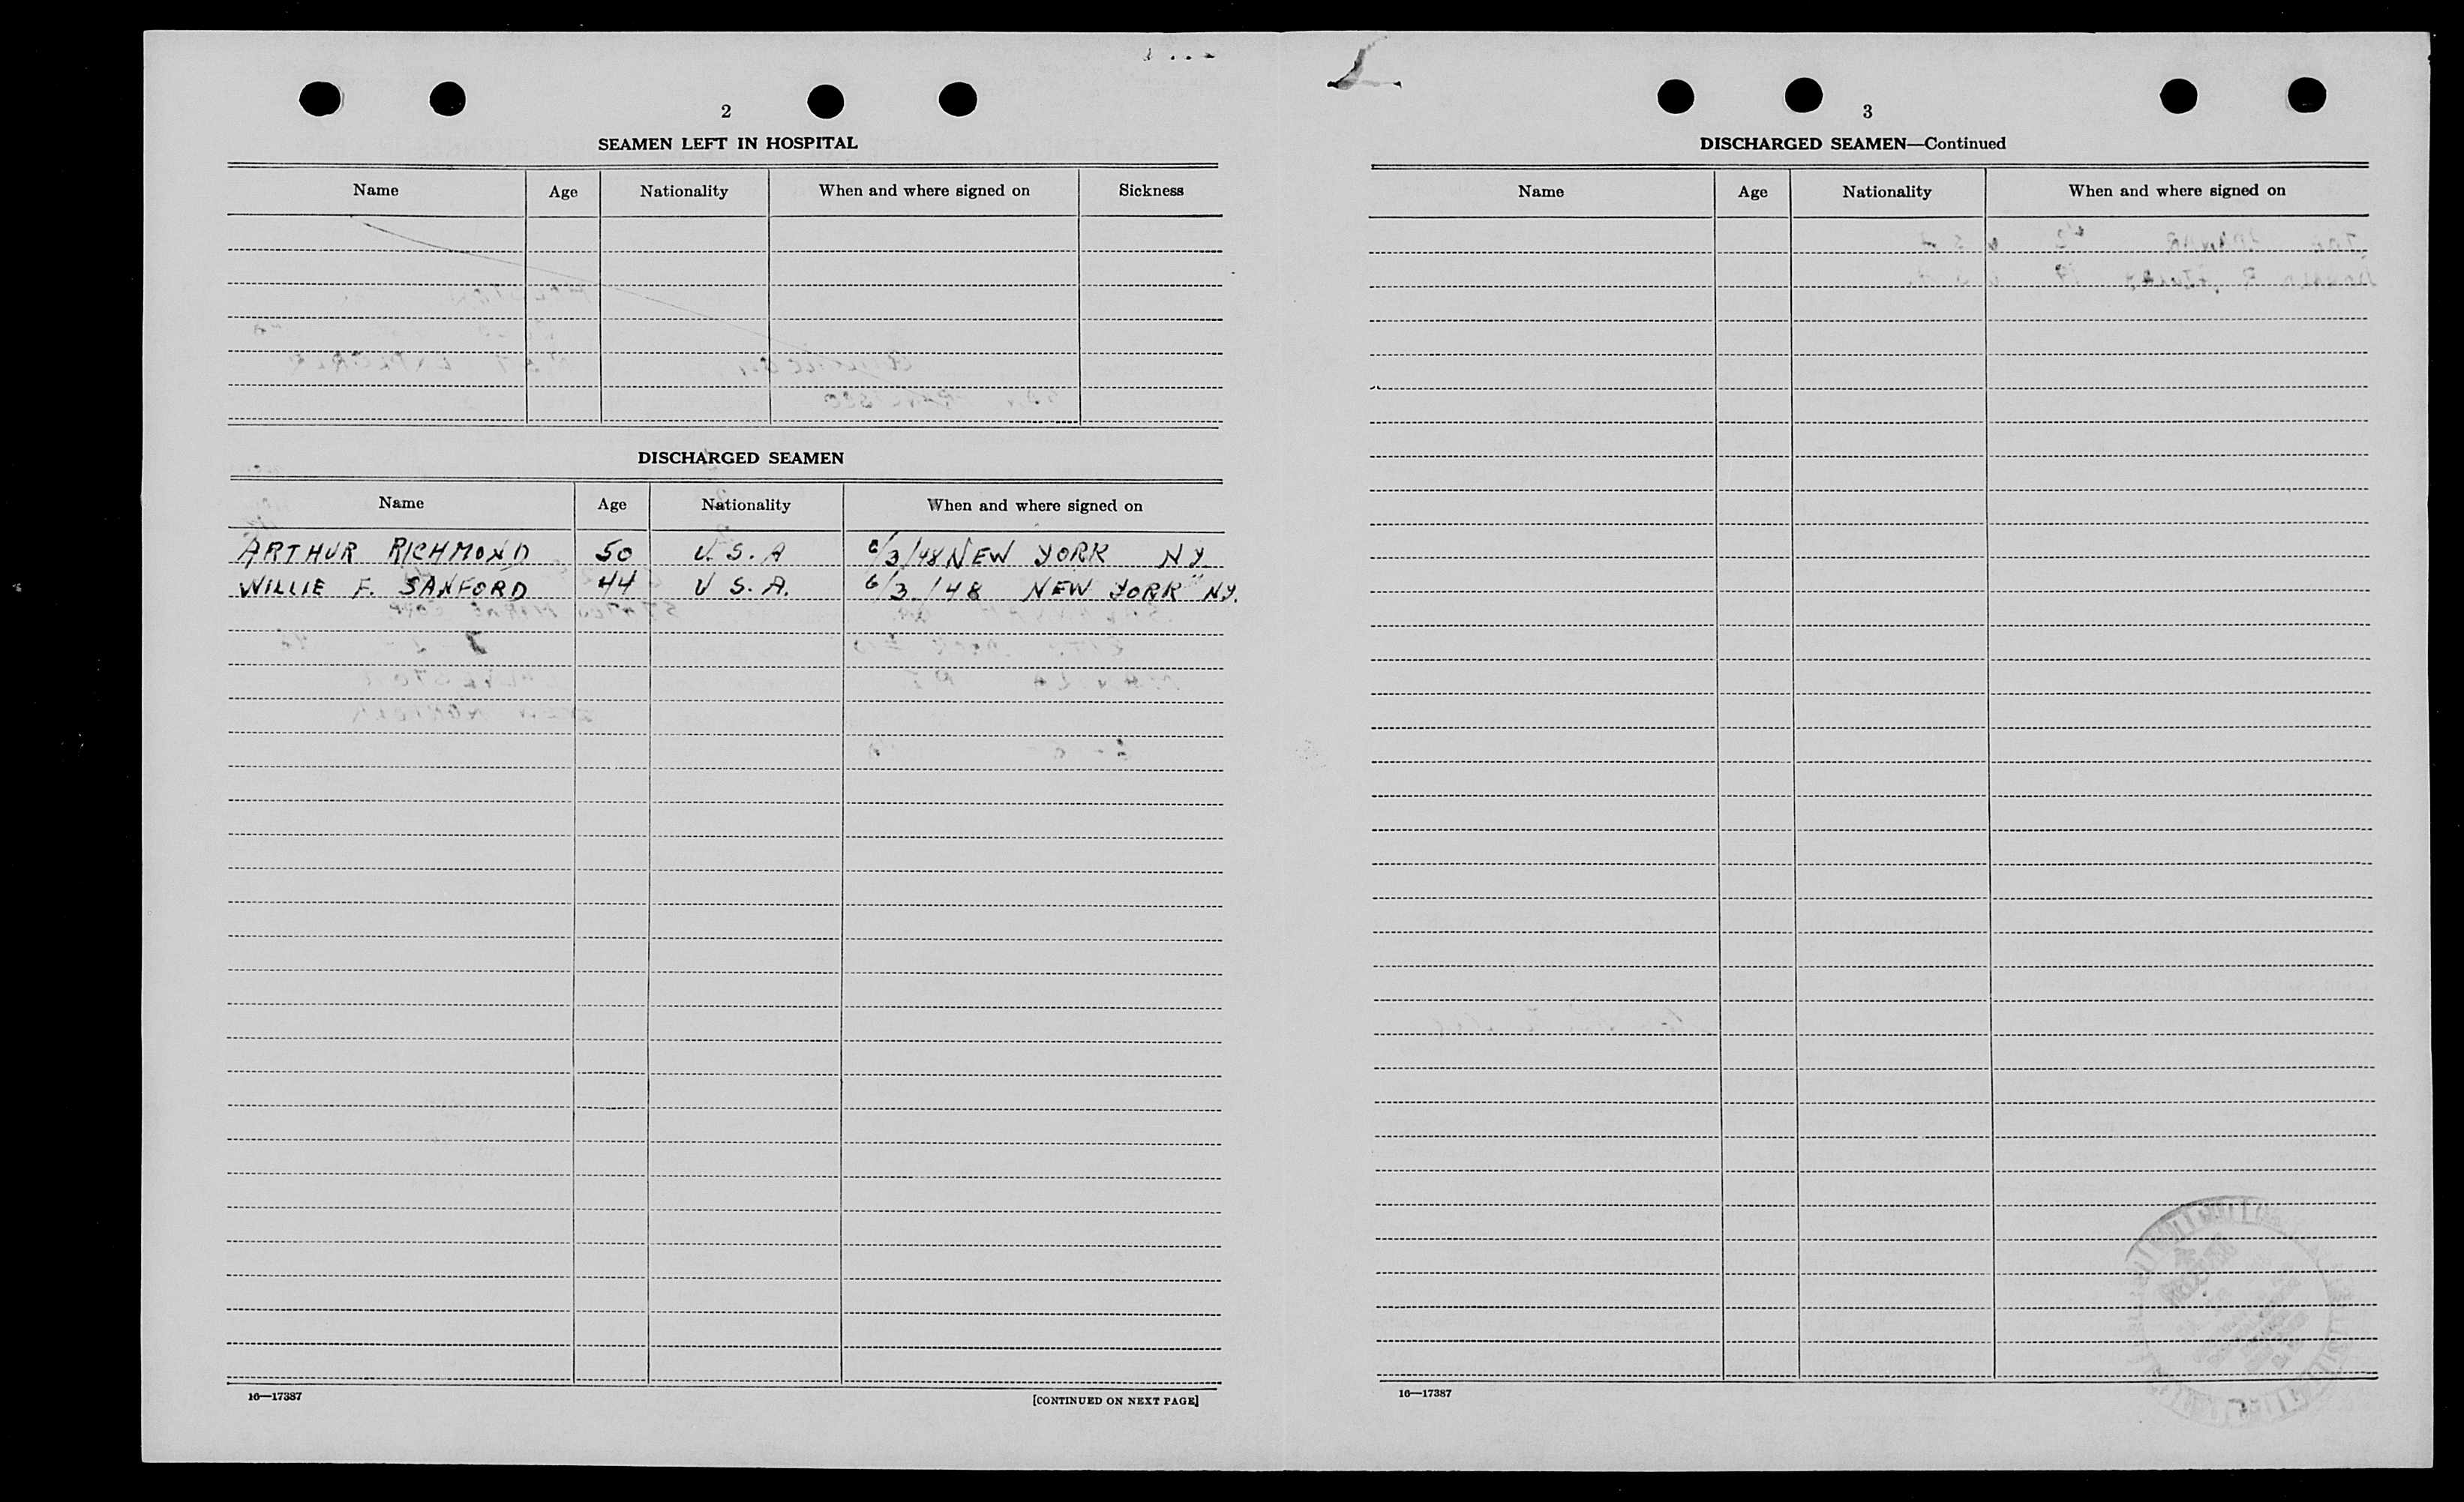 2
SEAMEN LEFT IN HOSPITAL
Name Age Nationality When and where signed on Sickness
DISCHARGED SEAMEN
Name Age Nationality When and where signed on
ARTHUR RICHMOND 50 U.S.A 6/3/48 NEW YORK NY.
WILLIE F. SANFORD 44 U S.A. 6/3/48 NEW YORK NY.
16—17387 [CONTINUED ON NEXT PAGE]
3
DISCHARGED SEAMEN—Continued
Name Age Nationality When and where signed on
16—17387